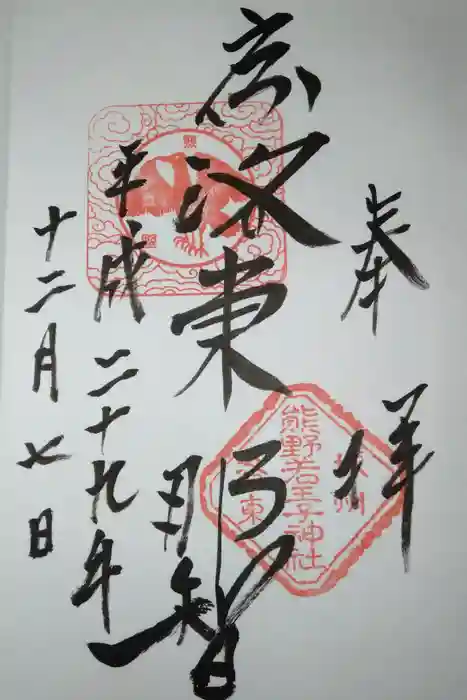 奉拝
京洛東
那智
平成二十九年
十二月七日
熊野若王子神社